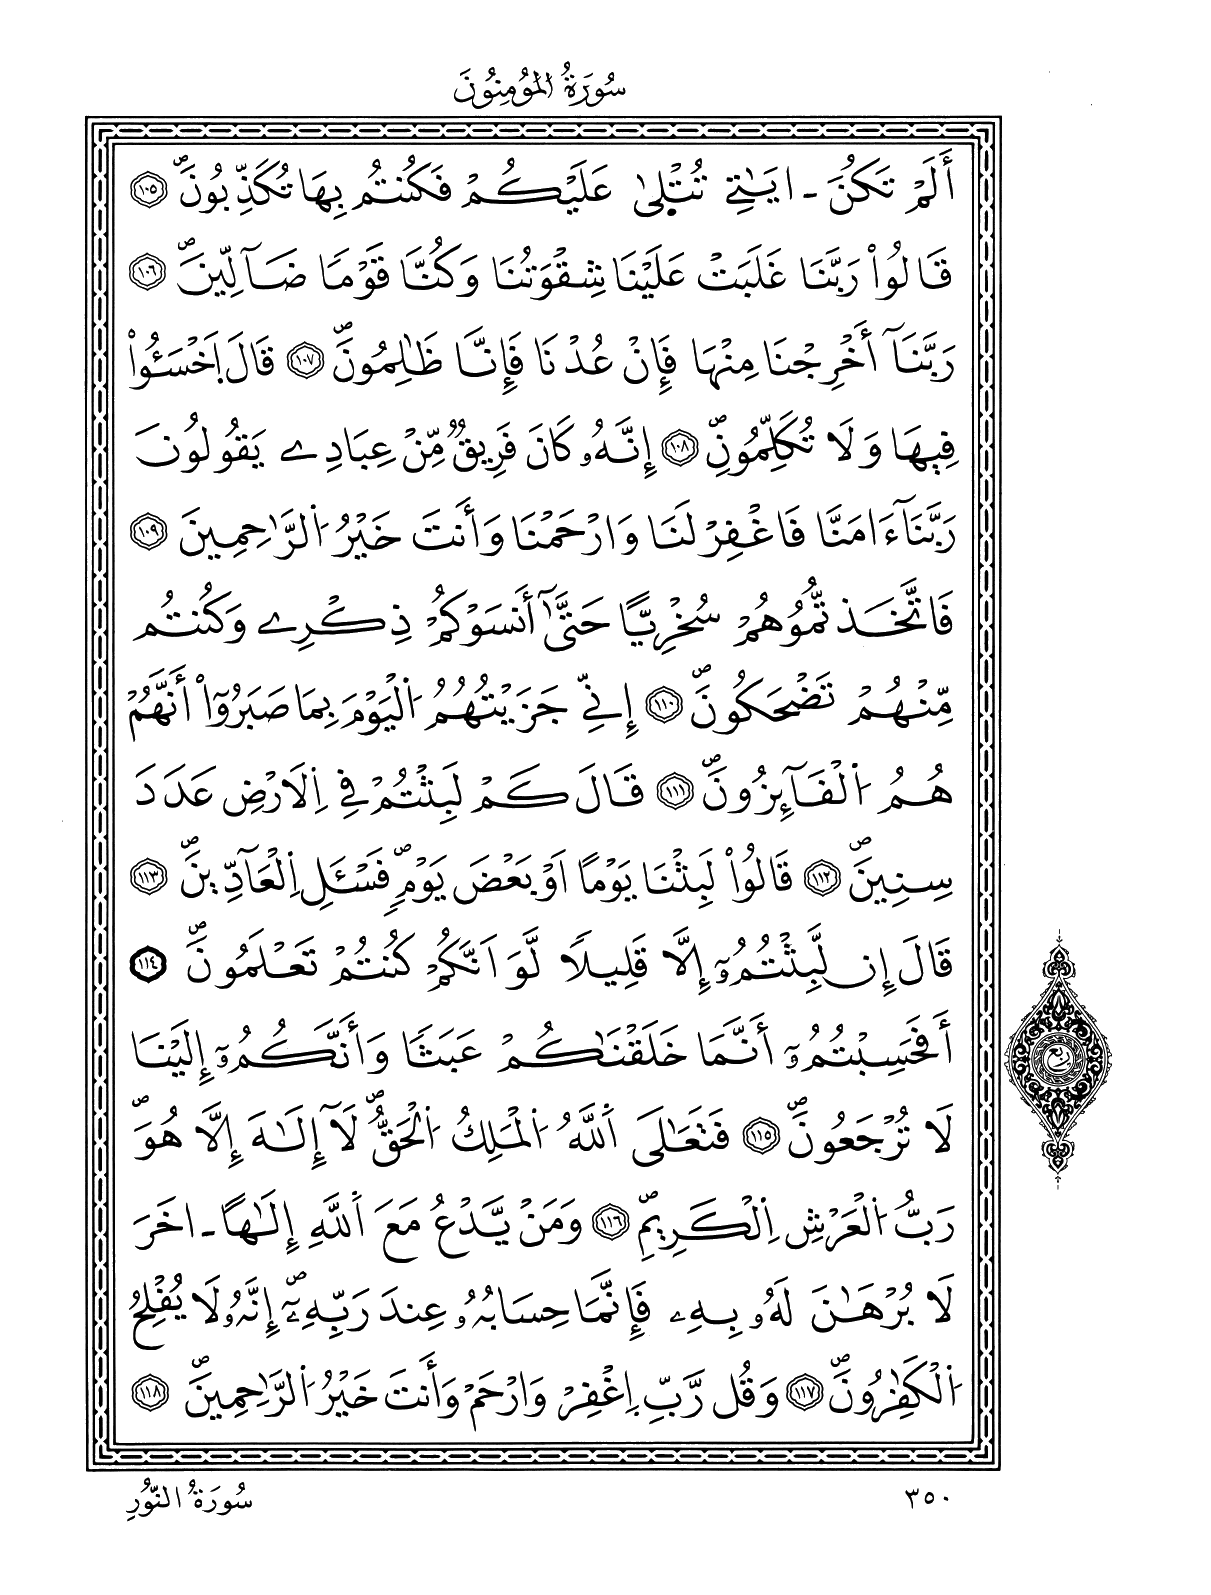 سُورَةُ الْمُؤْمِنُونَ
أَلَمْ تَكُنَ ـ ايَٰتِے تُتْلَىٰ عَلَيْكُمْ فَكُنتُم بِهَا تُكَذِّبُونَۖ ١٠٥
قَالُواْ رَبَّنَا غَلَبَتْ عَلَيْنَا شِقْوَتُنَا وَكُنَّا قَوْمًا ضَآلِّينَۖ ١٠٦
رَبَّنَآ أَخْرِجْنَا مِنْهَا فَإِنْ عُدْنَا فَإِنَّا ظَٰلِمُونَۖ ١٠٧ قَالَ اَخْسَـُٔواْ
فِيهَا وَلَا تُكَلِّمُونِۖ ١٠٨ إِنَّهُۥ كَانَ فَرِيقٌ مِّنْ عِبَادِے يَقُولُونَ
رَبَّنَآ ءَامَنَّا فَاغْفِرْ لَنَا وَارْحَمْنَا وَأَنتَ خَيْرُ اُلرَّٰحِمِينَ ١٠٩
فَاتَّخَذتُّمُوهُمْ سُخْرِيًّا حَتَّىٰٓ أَنسَوْكُمْ ذِكْرِے وَكُنتُم
مِّنْهُمْ تَضْحَكُونَۖ ١١٠ إِنِّے جَزَيْتُهُمُ اُلْيَوْمَ بِمَا صَبَرُوٓاْ أَنَّهُمْ
هُمُ اُلْفَآئِزُونَۖ ١١١ قَالَ كَمْ لَبِثْتُمْ فِے اِلَارْضِ عَدَدَ
سِنِينَۖ ١١٢ قَالُواْ لَبِثْنَا يَوْمًا اَوْ بَعْضَ يَوْمٍۖ فَسْـَٔلِ اِلْعَآدِّينَۖ ١١٣
قَالَ إِن لَّبِثْتُمُۥٓ إِلَّا قَلِيلًا لَّوَ اَنَّكُمْ كُنتُمْ تَعْلَمُونَۖ ١١٤
أَفَحَسِبْتُمُۥٓ أَنَّمَا خَلَقْنَٰكُمْ عَبَثًا وَأَنَّكُمُۥٓ إِلَيْنَا
لَا تُرْجَعُونَۖ ١١٥ فَتَعَٰلَى اَللَّهُ اُلْمَلِكُ اُلْحَقُّۖ لَآ إِلَٰهَ إِلَّا هُوَۖ
رَبُّ اُلْعَرْشِ اِلْكَرِيمِۖ ١١٦ وَمَنْ يَّدْعُ مَعَ اَللَّهِ إِلَٰهًا ـ اخَرَ
لَا بُرْهَٰنَ لَهُۥ بِهِۦ فَإِنَّمَا حِسَابُهُۥ عِندَ رَبِّهِۦٓۖ إِنَّهُۥ لَا يُفْلِحُ
اُلْكَٰفِرُونَۖ ١١٧ وَقُل رَّبِّ اِغْفِرْ وَارْحَمْ وَأَنتَ خَيْرُ اُلرَّٰحِمِينَۖ ١١٨
ربع
سُورَةُ النُّورِ
٣٥٠